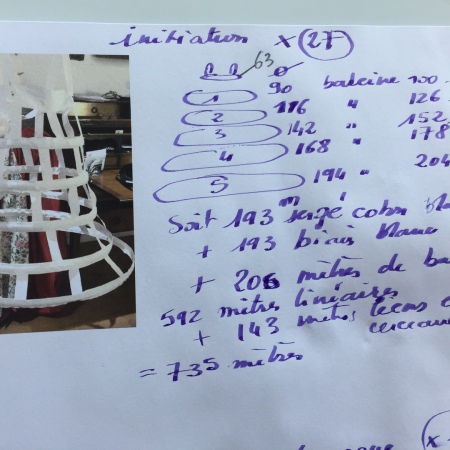 initiation x 27
63
90 baleine 100
1 116 " 126
2 142 " 152
3 168 " 178
4 194 " 204
5
Soit 193 m sergé coton
+ 193 biais blanc
+ 206 mètres de
592 mètres linéaires
+ 143 mètres
= 735 mètres